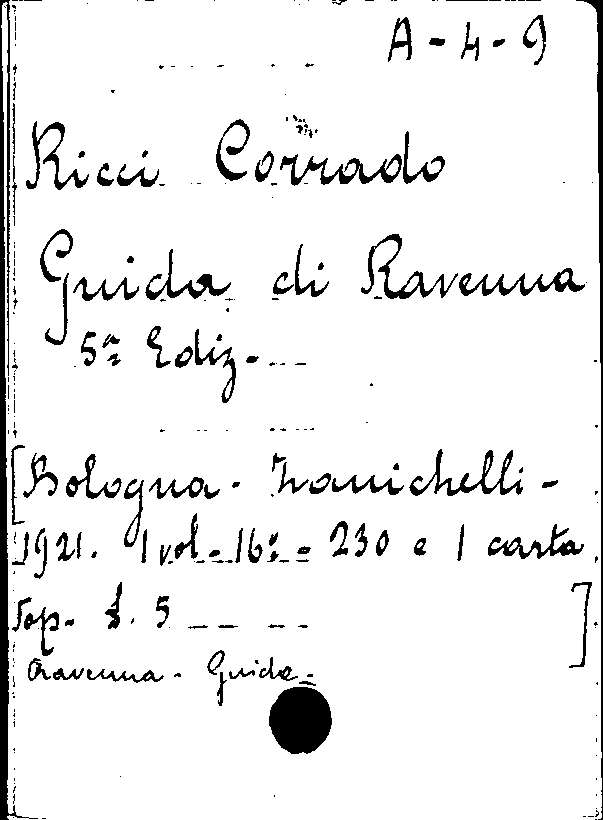 A-4-9
Ricci Corrado
Guida di Ravenna
5ª Ediz.
[Bologna - Zanichelli -
1921. 1 vol - 16º - 230 e 1 carta
Top. £. 5 ]
Ravenna - Guida -